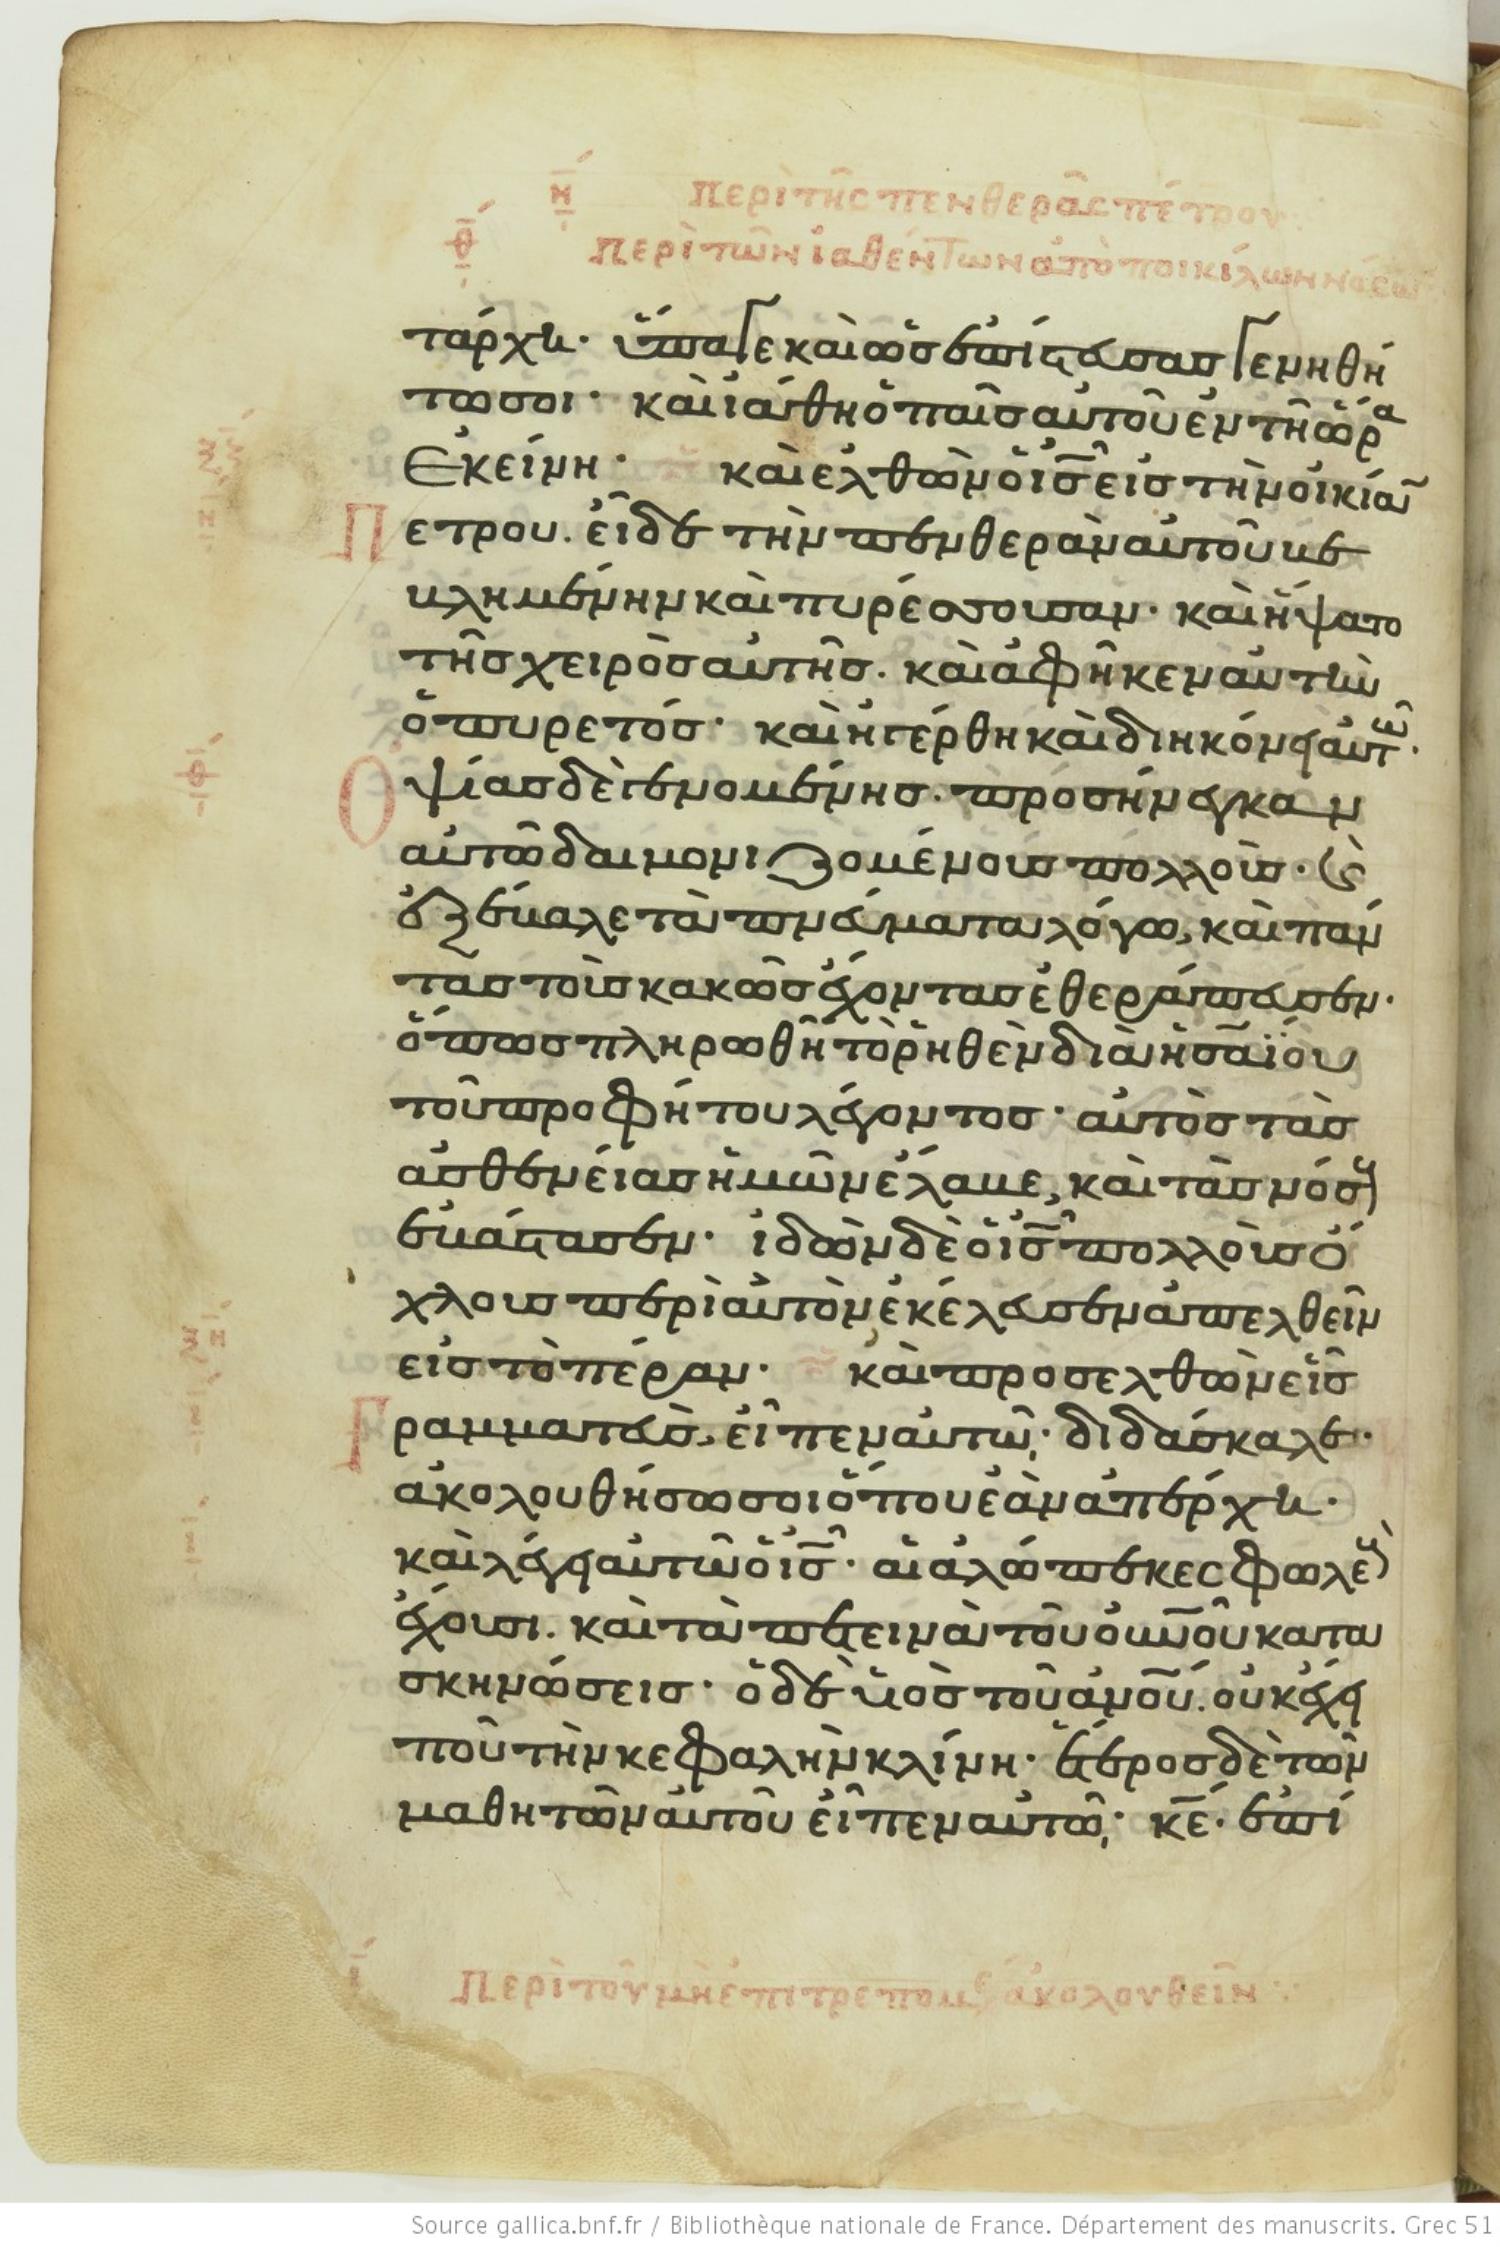 η Περὶ τῆς πενθερᾶς Πέτρου:
θ Περὶ τῶν ἰαθέντων ἀπὸ ποικίλων νόσων
τάρχη· ὕπαγε καὶ ὡς ἐπίστευσας γενηθή
τω σοι· καὶ ἰάθη ὁ παῖς αὐτοῦ ἐν τῆ ὥρα
Ἐκείνη· καὶ ἐλθὼν ὁ ις εἰς τὴν οἰκίαν
Πέτρου. εἶδε τὴν πενθερὰν αὐτοῦ βε
βλημένην καὶ πυρέσσουσαν· καὶ ἥψατο
τῆς χειρὸς αὐτῆς. καὶ ἀφῆκεν αὐτὴν
ὁ πυρετός· καὶ ἠγέρθη καὶ διηκόνει αὐτῶ·
Οψίας δὲ γενομένης. προσήνεγκαν
αὐτῶ δαιμονιζομένους πολλούς· καὶ
ἐξέβαλε τὰ πνεύματα λόγω, καὶ πάν
τας τοὺς κακῶς ἔχοντας ἐθεράπευσεν·
ὅπως πληρωθῆ τὸ ῥηθὲν διὰ ἡσαΐου
τοῦ προφήτου λέγοντος· αὐτὸς τὰς
ἀσθενείας ἡμῶν ἔλαβε, καὶ τὰς νόσους
ἐβάστασεν· ἰδὼν δὲ ὁ ις πολλοὺς ὄ
χλους περὶ αὐτὸν ἐκέλευσεν ἀπελθεῖν
εἰς τὸ πέραν· καὶ προσελθὼν εἷς
Γραμματεὺς, εἶπεν αὐτῶ· διδάσκαλε·
ἀκολουθήσω σοι ὅπου ἐὰν ἀπέρχη·
καὶ λέγει αὐτῶ ὁ ις· αἱ ἀλώπεκες φωλεοὺς
ἔχουσι. καὶ τὰ πετεινὰ τοῦ οὐνοῦ κατα
σκηνώσεις· ὁ δὲ υἱὸς τοῦ ἀνου. οὐκ ἔχει
ποῦ τὴν κεφαλὴν κλίνη· ἕτερος δὲ τῶν
μαθητῶν αὐτοῦ εἶπεν αὐτῶ· κε· ἐπί
ι Περὶ τοῦ μὴ ἐπιτρεπομένου ἀκολουθεῖν
Source gallica.bnf.fr / Bibliothèque nationale de France. Département des manuscrits. Grec 51